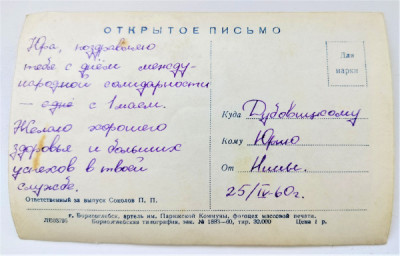 ОТКРЫТОЕ ПИСЬМО
Юра, поздравляю
тебя с днём между-
народной солидарности
— с 1 маем.
Желаю хорошего
здоровья и больших
успехов в твоей
службе.
Для
марки
Куда Дубовицкому
Кому Юрию
От Нины.
25/IV-60г.
Ответственный за выпуск Соколов П. П.
г. Борисоглебск, артель им. Парижской Коммуны, фотоцех массовой печати.
Борисоглебская типография, зак. № тир. 30.000 Цена 1 р.